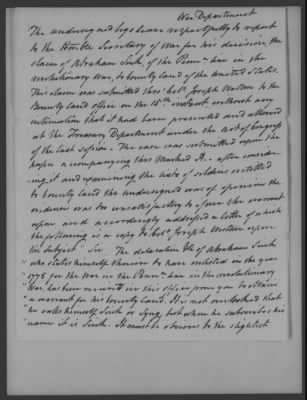 War Department
The undersigned begs leave respectfully to report
to the Honble Secretary of War for his decision, the
claim of Abraham Sink, of the Penn line in the
revolutionary War, to bounty land of the United States.
This claim was submitted thro' Col. Joseph Watson to the
Bounty land office on the 15th instant, without any
intimation that it had been presented and allowed
at the Treasury Department under the Act of Congress
of the last session. The case was submitted upon the
paper accompanying this Marked A. - after consider-
ing it and examining the lists of soldiers entitled
to bounty land the undersigned was of opinion the
evidence was too unsatisfactory to issue the warrant
upon and accordingly addressed a letter of which
the following is a copy to Col. Joseph Watson upon
the subject "Sir, The declaration &c of Abraham Sink
"who states himself therein to have enlisted in the year
1775 for the War in the Penn line in the revolutionary
War, has been received in this office from you to obtain
"a warrant for his bounty land. It is not overlooked that
"he calls himself Sink or Syng, but when he subscribes his
"name it is Sink. It must be obvious to the slightest